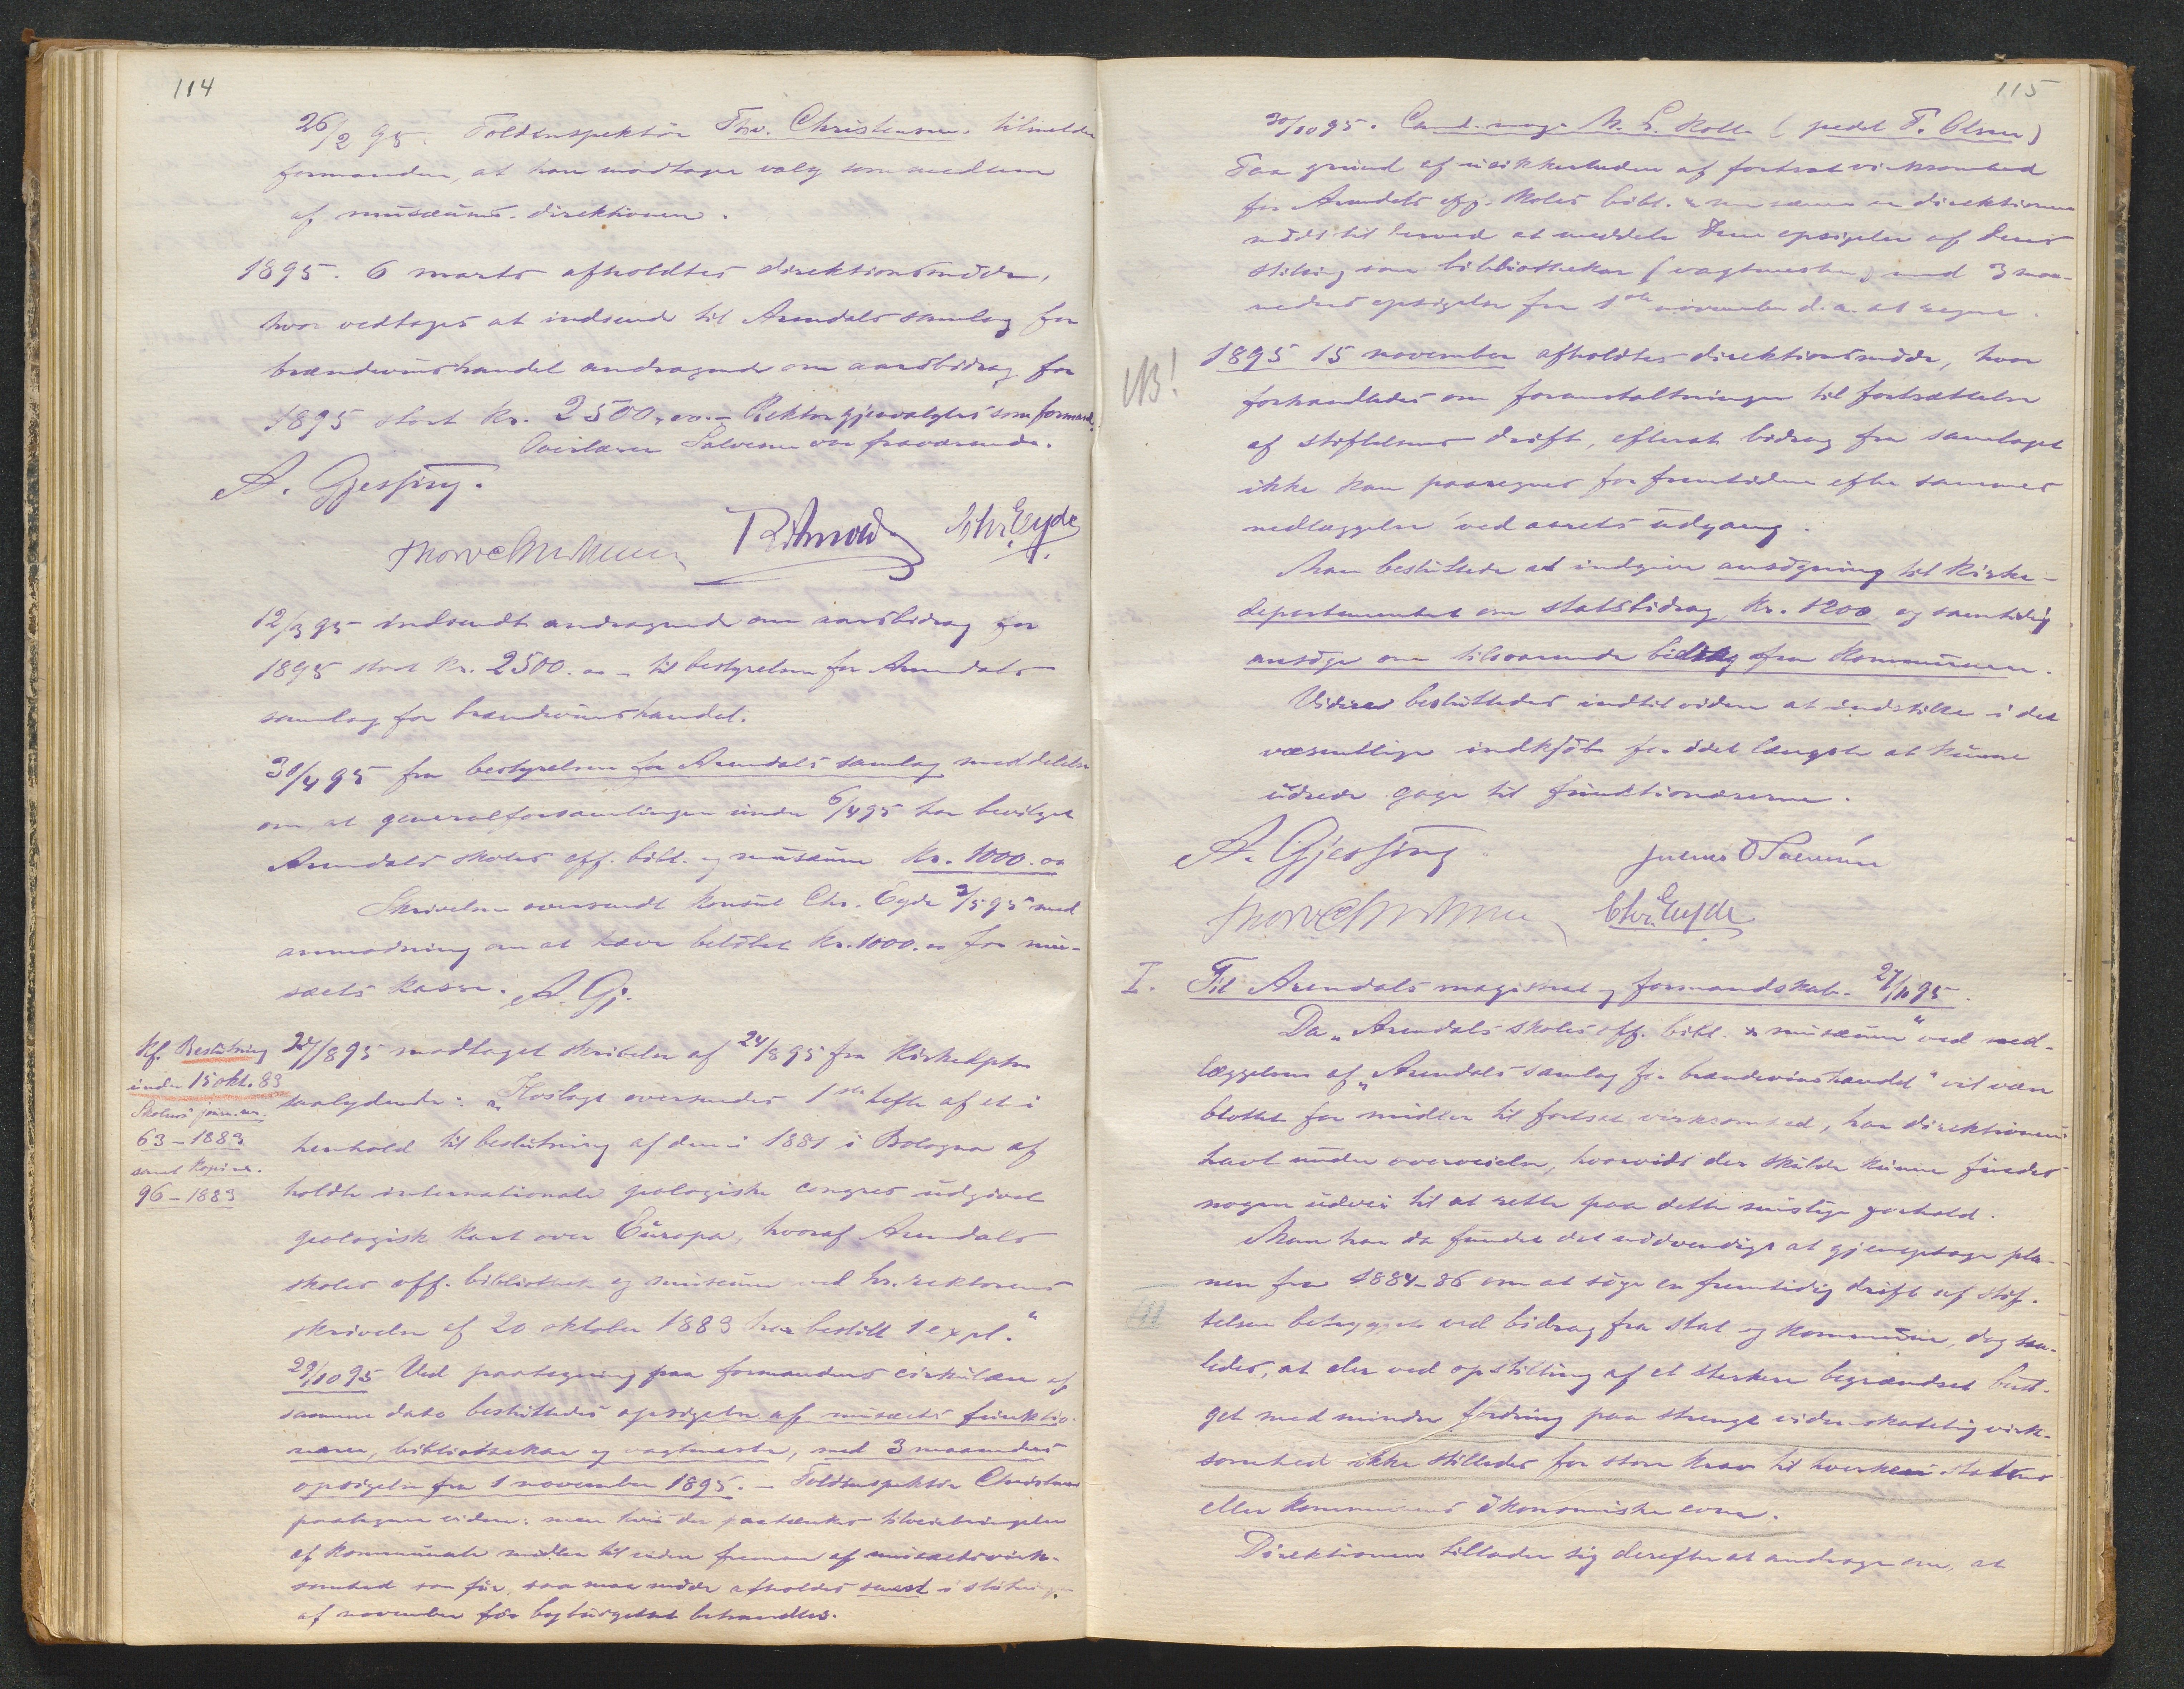 114
26/2 95. Toldinspektör Thv. Christensen tilmelder
formanden, at han modtager valg som medlem
af musæums-direktionen.
1895. 6 marts afholdtes direktionsmöde,
hvor vedtoges at indsende til Arendals samlag for
brændevinshandel andragende om aarsbidrag for
1895 stort kr. 2500,00. – Rektor gjenvalgtes som formand.
Overlærer Salvesen var fraværende.
A. Gjessing.
Thorv Christensen Chr. Eyde
12/3 95 indsendt andragende om aarsbidrag for
1895 stort kr. 2500.00 – til bestyrelsen for Arendals
samlag for brændevinshandel.
30/4 95 fra bestyrelsen for Arendals samlag meddelelse
om, at generalforsamlingen under 6/4 95 har bevilget
Arendals skoles off. bibl. og musæum kr. 1000.00
Skrivelsen oversendt konsul Chr. Eyde 3/5 95 med
anmodning om at hæve belöbet kr. 1000.00 for mu-
sæets kasse. A. Gj.
kf. Beslutning
under 15 okt. 83
Skolens journ. nr.
63 – 1883
samt kopi nr.
96 – 1883
27/8 95 modtaget skrivelse af 24/8 95 fra Kirkedptm
saalydende: „Hoslagt oversendes 1ste hefte af et i
henhold til beslutning af den i 1881 i Bologna af
holdte internationale geologiske congres udgivet
geologisk kart over Europa, hvoraf Arendals
skoles off. bibliothek og museum ved hr. rektorens
skrivelse af 20 oktober 1883 har bestilt 1 expl.“
29/10 95 Ved paategning paa formandens cirkulære af
samme dato besluttedes opsigelse af musæets funktio-
nærer, bibliothekar og vagtmester, med 3 maaneders
opsigelse fra 1 november 1895. – Toldinspektör Christensen
paategner videre: men hvis der paatænkes tilveiebringelse
af kommunale midler til videre fremme af musæets virk-
somhed som för, saa maa möde afholdes senest i slutningen
af november för bybudgettet behandles.
115
30/10 95. Cand. mag. M. S. Kolle (pedel T. Olsen)
Paa grund af usikkerheden af fortsat virksomhed
for Arendals off. skoles bibl. & musæum er direktionen
nödt til herved at meddele Dem opsigelse af Deres
stilling som bibliothekar (vagtmester) med 3 maa-
neders opsigelse fra 1ste november d. a. at regne.
NB!
1895 15 november afholdtes direktionsmöde, hvor
forhandledes om foranstaltninger til fortsættelse
af stiftelsens drift, efterat bidrag fra samlaget
ikke kan paaregnes for fremtiden efter sammes
nedlæggelse ved aarets udgang.
Man besluttede at indgive ansögning til Kirke-
departementet om statsbidrag, kr. 1200 og samtidig
ansöge om tilsvarende bidrag fra kommunen.
Videre besluttedes indtil videre at indstille i det
væsentlige indkjöb for idet længste at kunne
udrede gage til funktionærerne.
A. Gjessing
Thorv Christensen Chr. Eyde
I. Til Arendals magistrat og formandskab. 27/11 95.
Da „Arendals skoles off. bibl. & musæum“ ved ned-
læggelsen af „Arendals samlag for brændevinshandel“ vil være
blottet for midler til fortsat virksomhed, har direktionen
havt under overveielse, hvorvidt der skulde kunne findes
nogen udvei til at rette paa dette mislige forhold.
Man har da fundet det nödvendigt at gjenoptage pla-
nen fra 1884–86 om at söge en fremtidig drift af stif-
telsen betrygget ved bidrag fra stat og kommune, dog saa-
ledes, at der ved opstilling af et sterkere begrændset bud-
get med mindre fordring paa strengt videnskabelig virk-
somhed ikke stilledes for store krav til hverken statens
eller kommunens ökonomiske evne.
Direktionen tillader sig derefter at andrage om, at